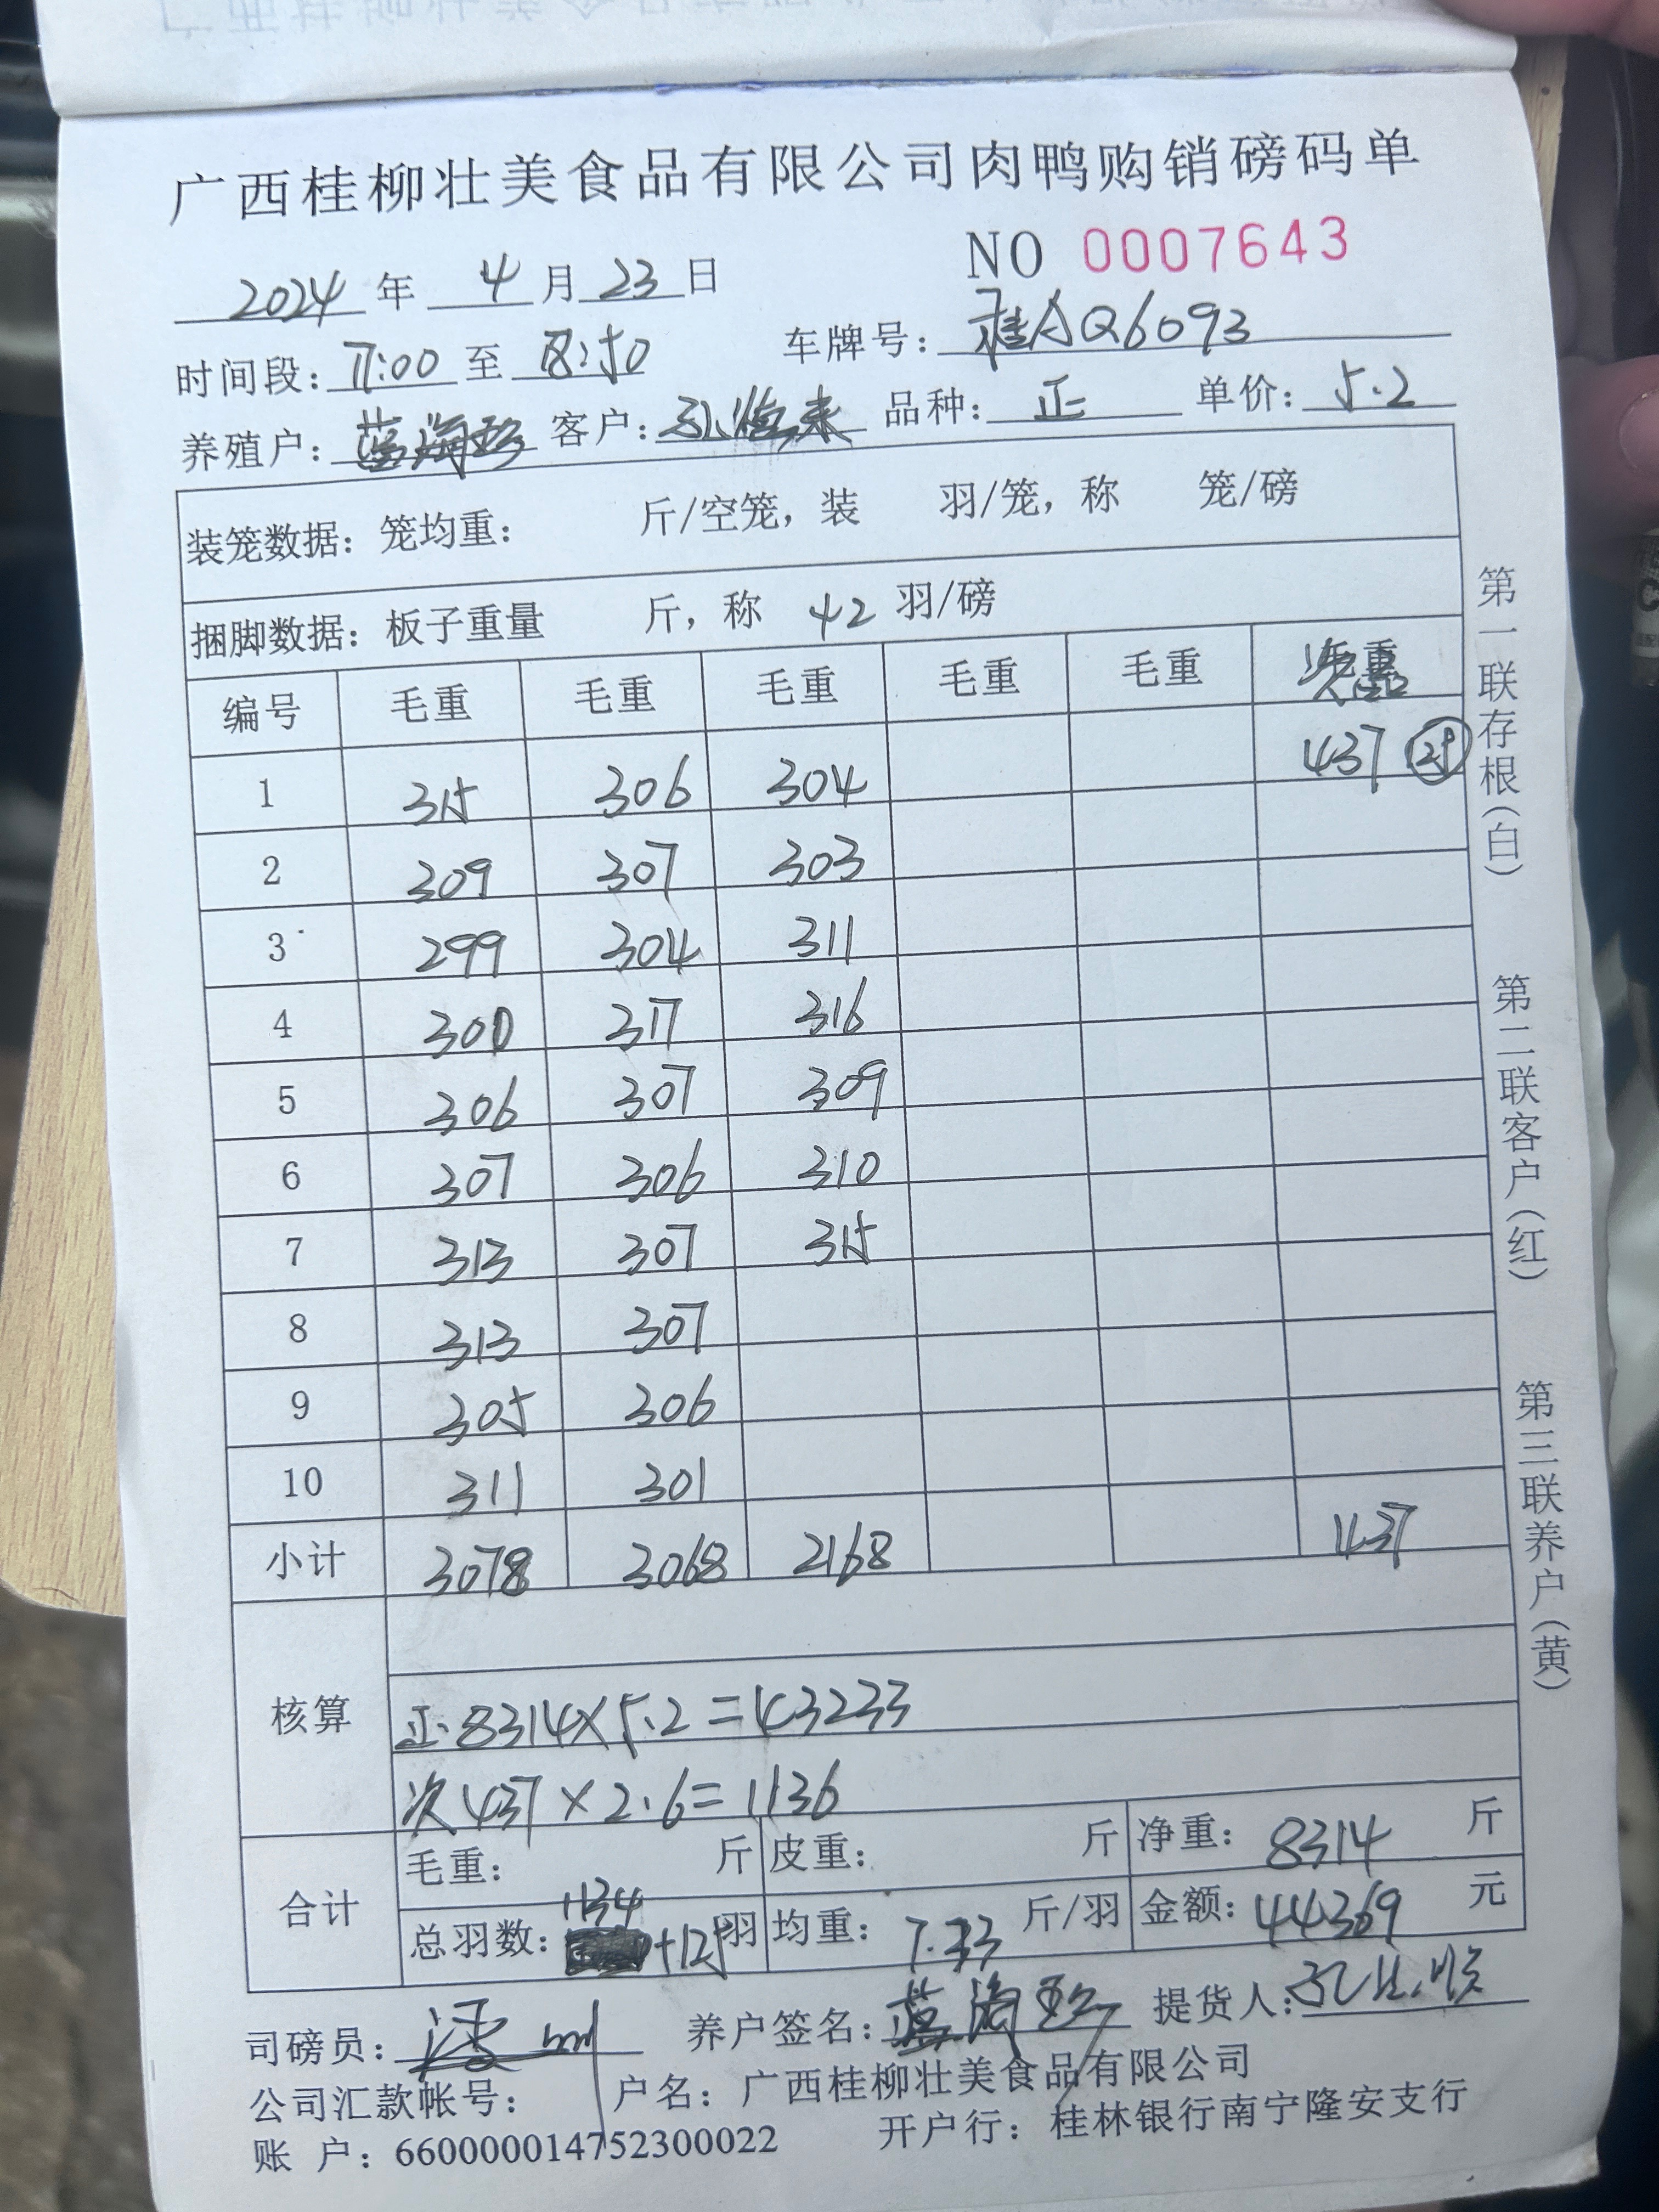 广西桂柳壮美食品有限公司肉鸭购销磅码单
NO 0007643
2024年 4月23日
时间段：17:00至 18:50 车牌号：桂AQ6093
养殖户：蓝海珍 客户： 品种：正 单价：5.2
装笼数据：笼均重： 斤/空笼，装 羽/笼，称 笼/磅
捆脚数据：板子重量 斤，称 42 羽/磅
编号 毛重 毛重 毛重 毛重 毛重
1 315 306 304 437
2 309 307 303
3 299 304 311
4 300 317 316
5 306 307 309
6 307 306 310
7 313 307 315
8 313 307
9 305 306
10 311 301
小计 3078 3068 2168 437
核算
正.8314×5.2=43233
次437×2.6=1136
合计
毛重： 斤 皮重： 斤 净重：8314 斤
总羽数：1134 +125羽 均重：7.33 斤/羽 金额：44369 元
司磅员： 养户签名：蓝海珍 提货人：
公司汇款帐号： 户名：广西桂柳壮美食品有限公司
账 户：660000014752300022 开户行：桂林银行南宁隆安支行
第一联存根（白）
第二联客户（红）
第三联养户（黄）